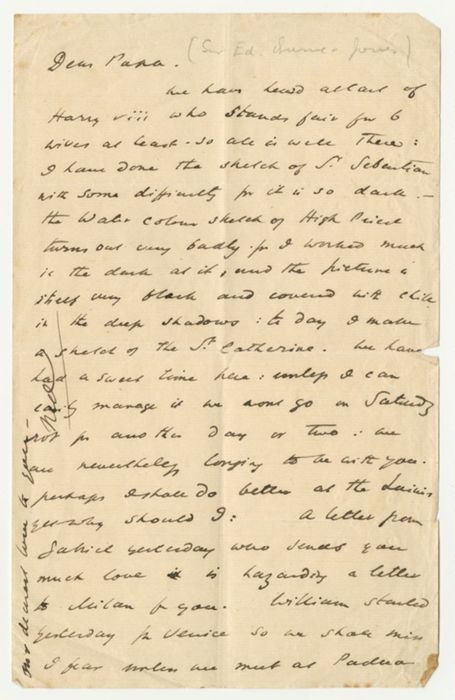 (Sir Ed. Burne-Jones)
Dear Papa.
we have heard at last of
Harry viii who stands fair for 6
wives at least - so all is well there:
I have done the sketch of St Sebastian
with some difficulty for it is so dark. -
the Water colour sketch of High Priest
turns out very badly for I worked much
in the dark at it, and the picture is
itself very black and covered with chill
in the deep shadows: to day I make
a sketch of the St Catherine. We have
had a sweet time here: unless I can
easily manage it we wont go on Saturday
not for another day or two: we
are nevertheless longing to be with you.
perhaps I shall do better at the Luinis
yet why should I: A letter from
Gabriel yesterday who sends you
much love is hazarding a letter
to Milan for you. William started
yesterday for Venice so we shall miss
I fear unless we meet at Padua
my dearest love to you -
Ned